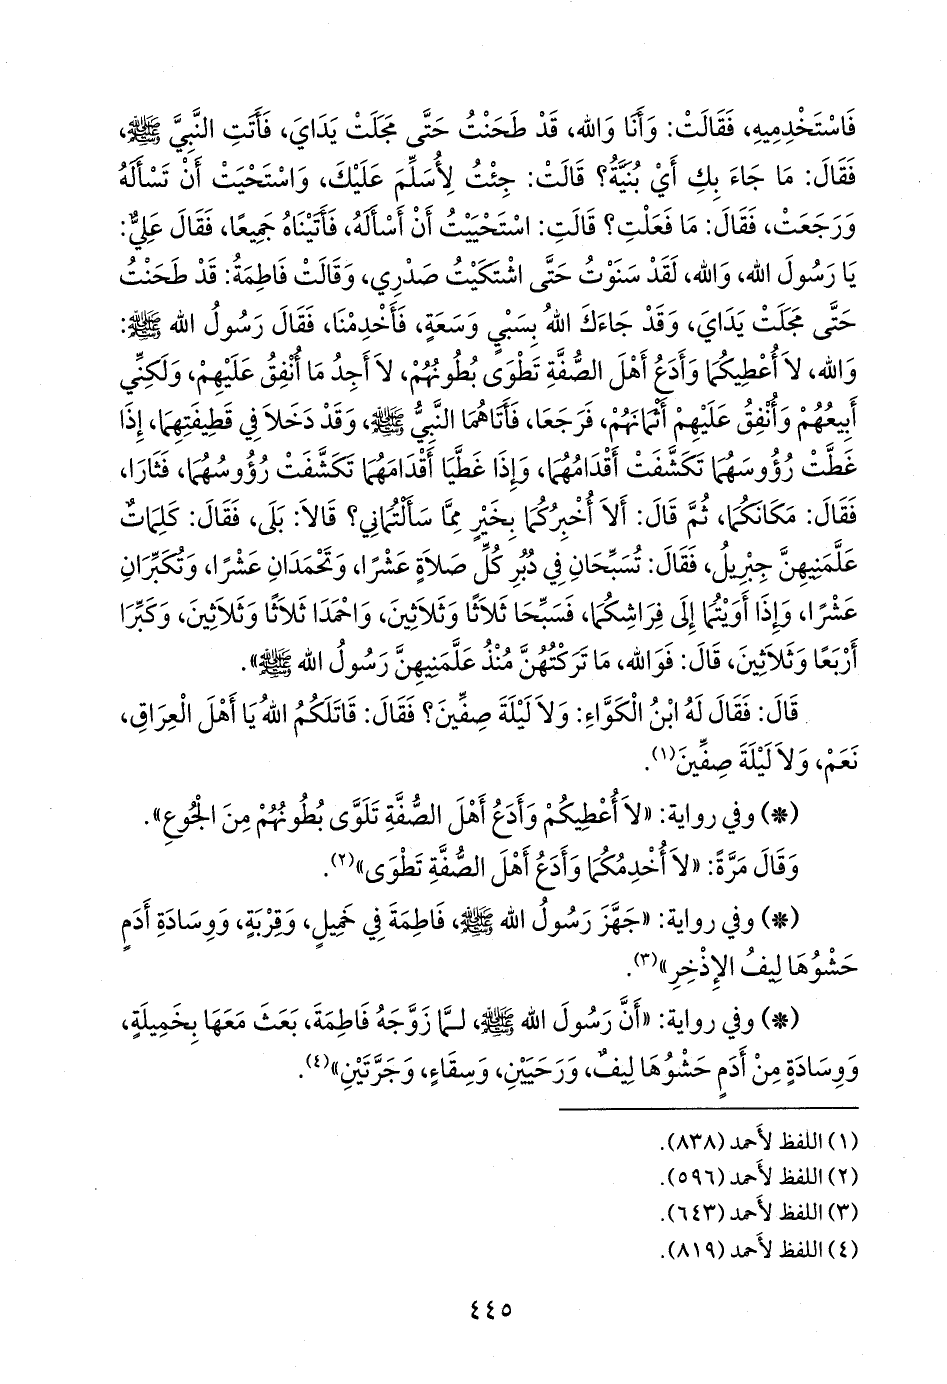 فَاسْتَخْدِمِيهِ، فَقَالَتْ: وَأَنَا وَالله، قَدْ طَحَنْتُ حَتَّى مَجَلَتْ يَدَايَ، فَأَتَتِ النَّبِيَّ ﷺ،
فَقَالَ: مَا جَاءَ بِكِ أَيْ بُنَيَّةُ؟ قَالَتْ: جِئْتُ لِأُسَلِّمَ عَلَيْكَ، وَاسْتَحْيَتْ أَنْ تَسْأَلَهُ
وَرَجَعَتْ، فَقَالَ: مَا فَعَلْتِ؟ قَالَتِ: اسْتَحْيَيْتُ أَنْ أَسْأَلَهُ، فَأَتَيْنَاهُ جَمِيعًا، فَقَالَ عَلِيٌّ:
يَا رَسُولَ الله، وَالله، لَقَدْ سَنَوْتُ حَتَّى اشْتَكَيْتُ صَدْرِي، وَقَالَتْ فَاطِمَةُ: قَدْ طَحَنْتُ
حَتَّى مَجَلَتْ يَدَايَ، وَقَدْ جَاءَكَ اللهُ بِسَبْيٍ وَسَعَةٍ، فَأَخْدِمْنَا، فَقَالَ رَسُولُ الله ﷺ:
وَالله، لاَ أُعْطِيكُمَا وَأَدَعُ أَهْلَ الصُّفَّةِ تَطْوَى بُطُونُهُمْ، لاَ أَجِدُ مَا أُنْفِقُ عَلَيْهِمْ، وَلَكِنِّي
أَبِيعُهُمْ وَأُنْفِقُ عَلَيْهِمْ أَثْمَانَهُمْ، فَرَجَعَا، فَأَتَاهُمَا النَّبِيُّ ﷺ، وَقَدْ دَخَلاَ فِي قَطِيفَتِهِمَا، إِذَا
غَطَّتْ رُؤُوسَهُمَا تَكَشَّفَتْ أَقْدَامُهُمَا، وَإِذَا غَطَّيَا أَقْدَامَهُمَا تَكَشَّفَتْ رُؤُوسُهُمَا، فَثَارَا،
فَقَالَ: مَكَانَكُمَا، ثُمَّ قَالَ: أَلاَ أُخْبِرُكُمَا بِخَيْرٍ مِمَّا سَأَلْتُمَانِي؟ قَالاَ: بَلَى، فَقَالَ: كَلِمَاتٌ
عَلَّمَنِيهِنَّ جِبْرِيلُ، فَقَالَ: تُسَبِّحَانِ فِي دُبُرِ كُلِّ صَلاَةٍ عَشْرًا، وَتَحْمَدَانِ عَشْرًا، وَتُكَبِّرَانِ
عَشْرًا، وَإِذَا أَوَيْتُمَا إِلَى فِرَاشِكُمَا، فَسَبِّحَا ثَلاَثًا وَثَلاَثِينَ، وَاحْمَدَا ثَلاَثًا وَثَلاَثِينَ، وَكَبِّرَا
أَرْبَعًا وَثَلاَثِينَ، قَالَ: فَوَالله، مَا تَرَكْتُهُنَّ مُنْذُ عَلَّمَنِيهِنَّ رَسُولُ الله ﷺ».
قَالَ: فَقَالَ لَهُ ابْنُ الْكَوَّاءِ: وَلاَ لَيْلَةَ صِفِّينَ؟ فَقَالَ: قَاتَلَكُمُ اللهُ يَا أَهْلَ الْعِرَاقِ،
نَعَمْ، وَلاَ لَيْلَةَ صِفِّينَ(١).
(*) وفي رواية: «لاَ أُعْطِيكُمْ وَأَدَعُ أَهْلَ الصُّفَّةِ تَلَوَّى بُطُونُهُمْ مِنَ الْجُوعِ».
وَقَالَ مَرَّةً: «لاَ أُخْدِمُكُمَا وَأَدَعُ أَهْلَ الصُّفَّةِ تَطْوَى»(٢).
(*) وفي رواية: «جَهَّزَ رَسُولُ الله ﷺ، فَاطِمَةَ فِي خَمِيلٍ، وَقِرْبَةٍ، وَوِسَادَةِ أَدَمٍ
حَشْوُهَا لِيفُ الإِذْخِرِ»(٣).
(*) وفي رواية: «أَنَّ رَسُولَ الله ﷺ، لَمَّا زَوَّجَهُ فَاطِمَةَ، بَعَثَ مَعَهَا بِخَمِيلَةٍ،
وَوِسَادَةٍ مِنْ أَدَمٍ حَشْوُهَا لِيفٌ، وَرَحَيَيْنِ، وَسِقَاءٍ، وَجَرَّتَيْنِ»(٤).
(١) اللفظ لأَحمد (٨٣٨).
(٢) اللفظ لأَحمد (٥٩٦).
(٣) اللفظ لأَحمد (٦٤٣).
(٤) اللفظ لأَحمد (٨١٩).
٤٤٥